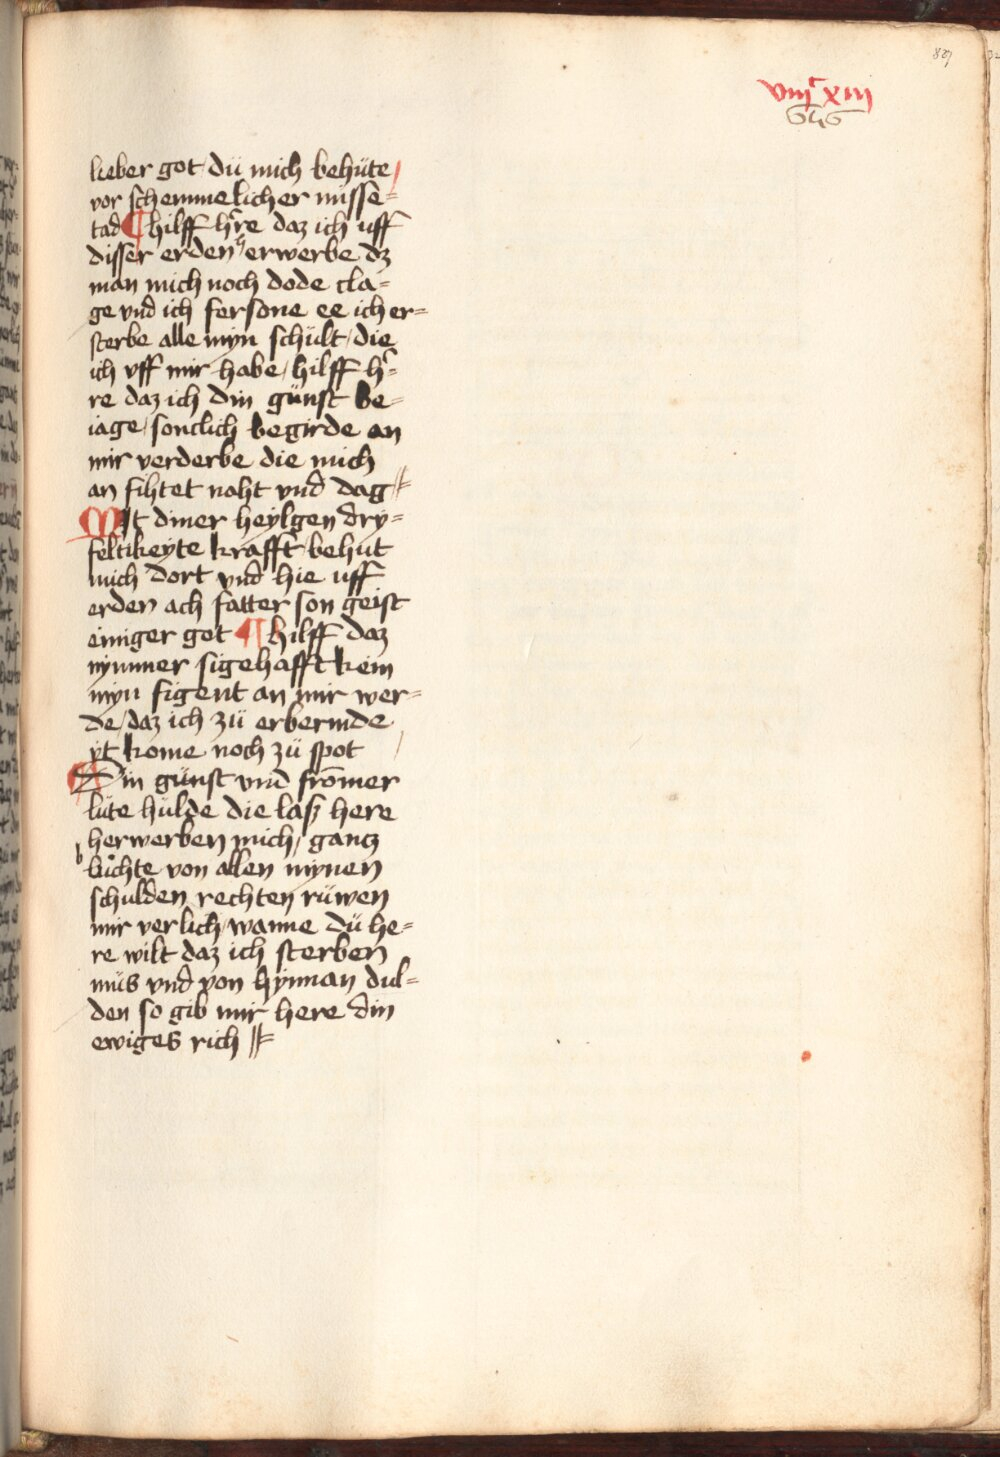 827
viijͨ xiij
646
lieber got / dü mich behüte /
vor schemmelicher misse=
tad ¶ hilff hͤre daz ich uff
disser erden erwerbe dz
man mich noch dode cla=
ge vnd ich fersone ee ich er=
sterbe alle myn schült / die
ich vff mir habe / hilff hͤ=
re daz ich din günst be=
iage / sontlich begirde an
mir verderbe die mich
an fihtet naht vnd dag
Mit diner heylgen dry=
feltikeyte krafft behut
mich dort vnd hie uff
erden ach fatter son geist
einiger got ¶ hilff daz
nymmer sigehafft kein
myn figent an mir wer=
de / daz ich zü erbermde
yt kome noch zü spot
Din günst vnd fromer
lüte hülde die laß here
herwerben mich / gancz
bichte von allen mynen
schulden rechten rüwen
mir verlich / wanne dü he=
re wilt daz ich sterben
müs vnd von hynnan dul=
den so gib mir here din
ewiges rich